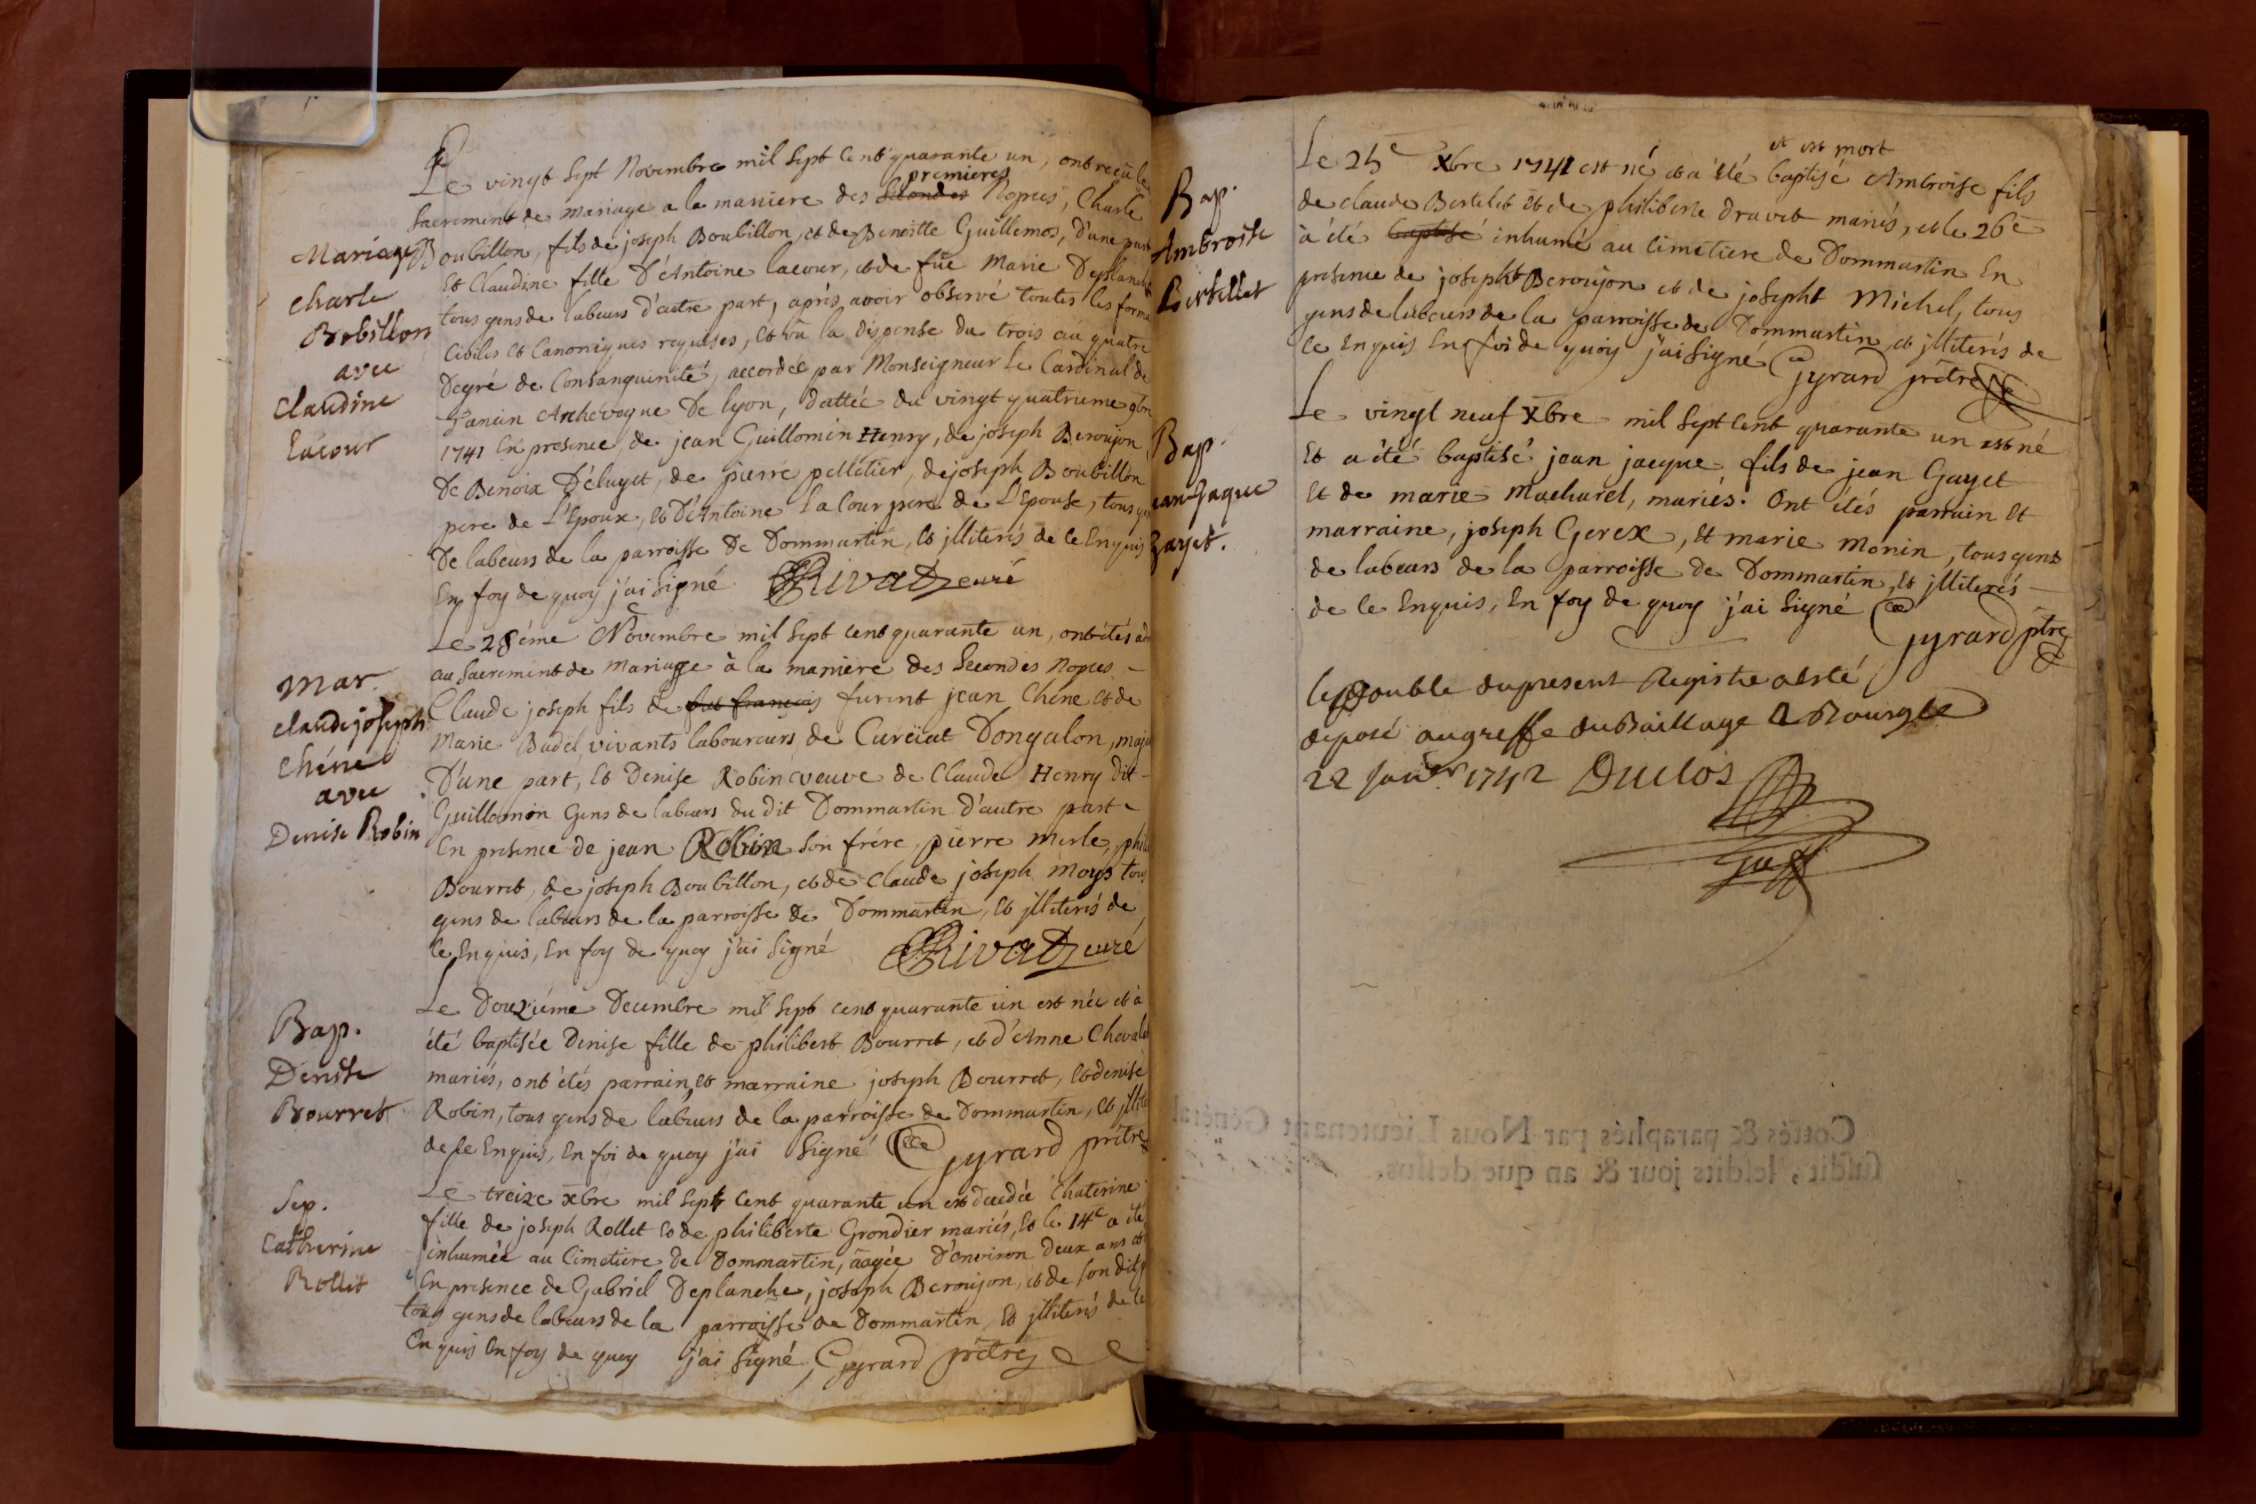 Mariage
Charle
Bobillon
avec
Claudine
Lacour
Le vingt sept Novembre mil sept cent quarante un, ont reçu le
premieres
sacrement de mariage a la maniere des secondes Nopces, Charle
Boubillon, fils de joseph Boubillon, et de Benoitte Guillemos, d'une part
Et Claudine fille D'Antoine lacour, et de füe Marie Deplanche
tous gens de labeurs d'autre part, aprés avoir observé toutes les forma
Civiles et Canoniques requises, et vû la dispense du trois aü quatre
Degré de Consanguinité, accordée par Monseigneur le Cardinal de
Tancin Archeveque De lyon, dattée du vingt quatrieme 9bre
1741 En presence, de jean Guillomin Henry, de joseph Beroujon
De Benoix D'éluyet, de pierre pelletier, de joseph Boubillon
pere de L'Epoux, et D'Antoine La Cour pere de L'Epouse, tous gen
De labeurs de la parroisse De Dommartin, et jlliterés de ce Enquis
En foy de quoy j'ai signé Rivat curé
Mar.
Claude joseph
Chéne
avec
Denise Robin
Le 28éme Novembre mil sept cent quarante un, ont étés ad
au sacrement de Mariage à la maniere des secondes nopces
Claude joseph fils de fut françois furent jean Chéne et de
Marie Badel vivants laboureurs de Curciat Dongalon, maje
D'une part, et Denise Robin veuve de Claude Henry dit
Guillomin Gens de labeurs du dit Dommartin d'autre part
En presence de jean Robin son frére, pierre Merle, phili
Bourret, de joseph Boubillon, et de Claude joseph Moys tous
gens de labeurs de la parroisse de Dommartin, et jlliterés de
ce Enquis, En foy de quoy j'ai signé Rivat curé
Bap.
Denise
Bourret
Le Douziéme Decembre mil sept cent quarante un est née et à
été baptisée Denise fille de philibert Bourret, et d'Anne Chevale
mariés, ont étés parrain, et marraine joseph Bourret, et denise
Robin, tous gens de labeurs de la parroisse de Dommartin, et jllite
de ce Enquis, En foi de quoy j'ai signé Gyrard prêtre
Sep.
Catherine
Rollet
Le treize xbre mil sept cent quarante un est decedée Chaterine
fille de joseph Rollet et de philiberte Grondier mariés, et le 14e a été
inhumée au Cimetiere de Dommartin, aagée D'environ deux ans et
En presence de Gabriel Deplanche, joseph Beroujon, et de son dit p
tous gens de labeurs de la parroisse de Dommartin, et jlliterés de ce
Enquis En foy de quoy j'ai signé, Gyrard prêtre
Bap.
Ambroise
Bertellet
et est mort
Le 25e xbre 1741 est né et a été baptisé Ambroise fils
de claude Bertelet et de philiberte dravet mariés, et le 26e
à été baptisé inhumé au Cimetiere de Dommartin En
presence de joseph Beroujon et de joseph Michel, tous
gens de labeurs de la parroisse de Dommartin, et jlliterés de
ce Enquis En foi de quoy j'ai signé Gyrard prêtre
Bap.
ean Jaque
Gayet.
Le vingt neuf xbre mil sept cent quarante un est né
Et a été baptisé jean jacque fils de jean Gayet
Et de marie Macharel, mariés. Ont étés parrain Et
marraine, joseph Gerex, Et marie Monin, tous gens
de labeurs de la parroisse de Dommartin, Et jlliterés
de ce Enquis, En foy de quoy j'ai signé
Gyrard ptre
Le Double du present Registre a esté
deposé au greffe du Baillage de Bourg le
22 janver 1742 Duclos
Cottés & paraphés par Nous Lieutenant Général
susdit, lesdits jour & an que dessus.